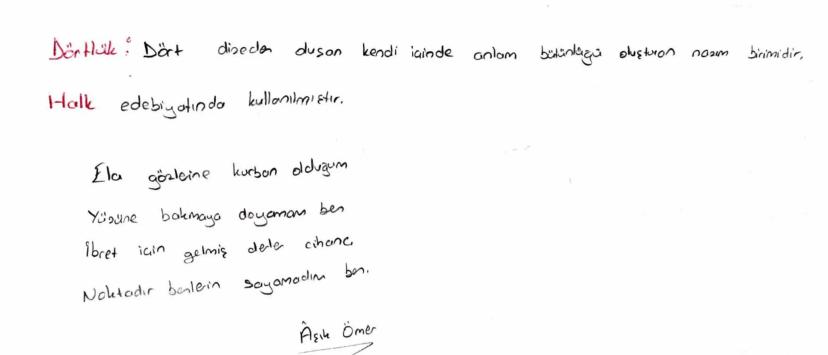 Dörtlük: Dört dizeden oluşan kendi içinde anlam bütünlüğü oluşturan nazım birimidir.
Halk edebiyatında kullanılmıştır.
Ela gözlerine kurban olduğum
Yüzüne bakmaya doyamam ben
İbret için gelmiş derler cihane
Noktadır benlerin sayamadım ben.
Âşık Ömer